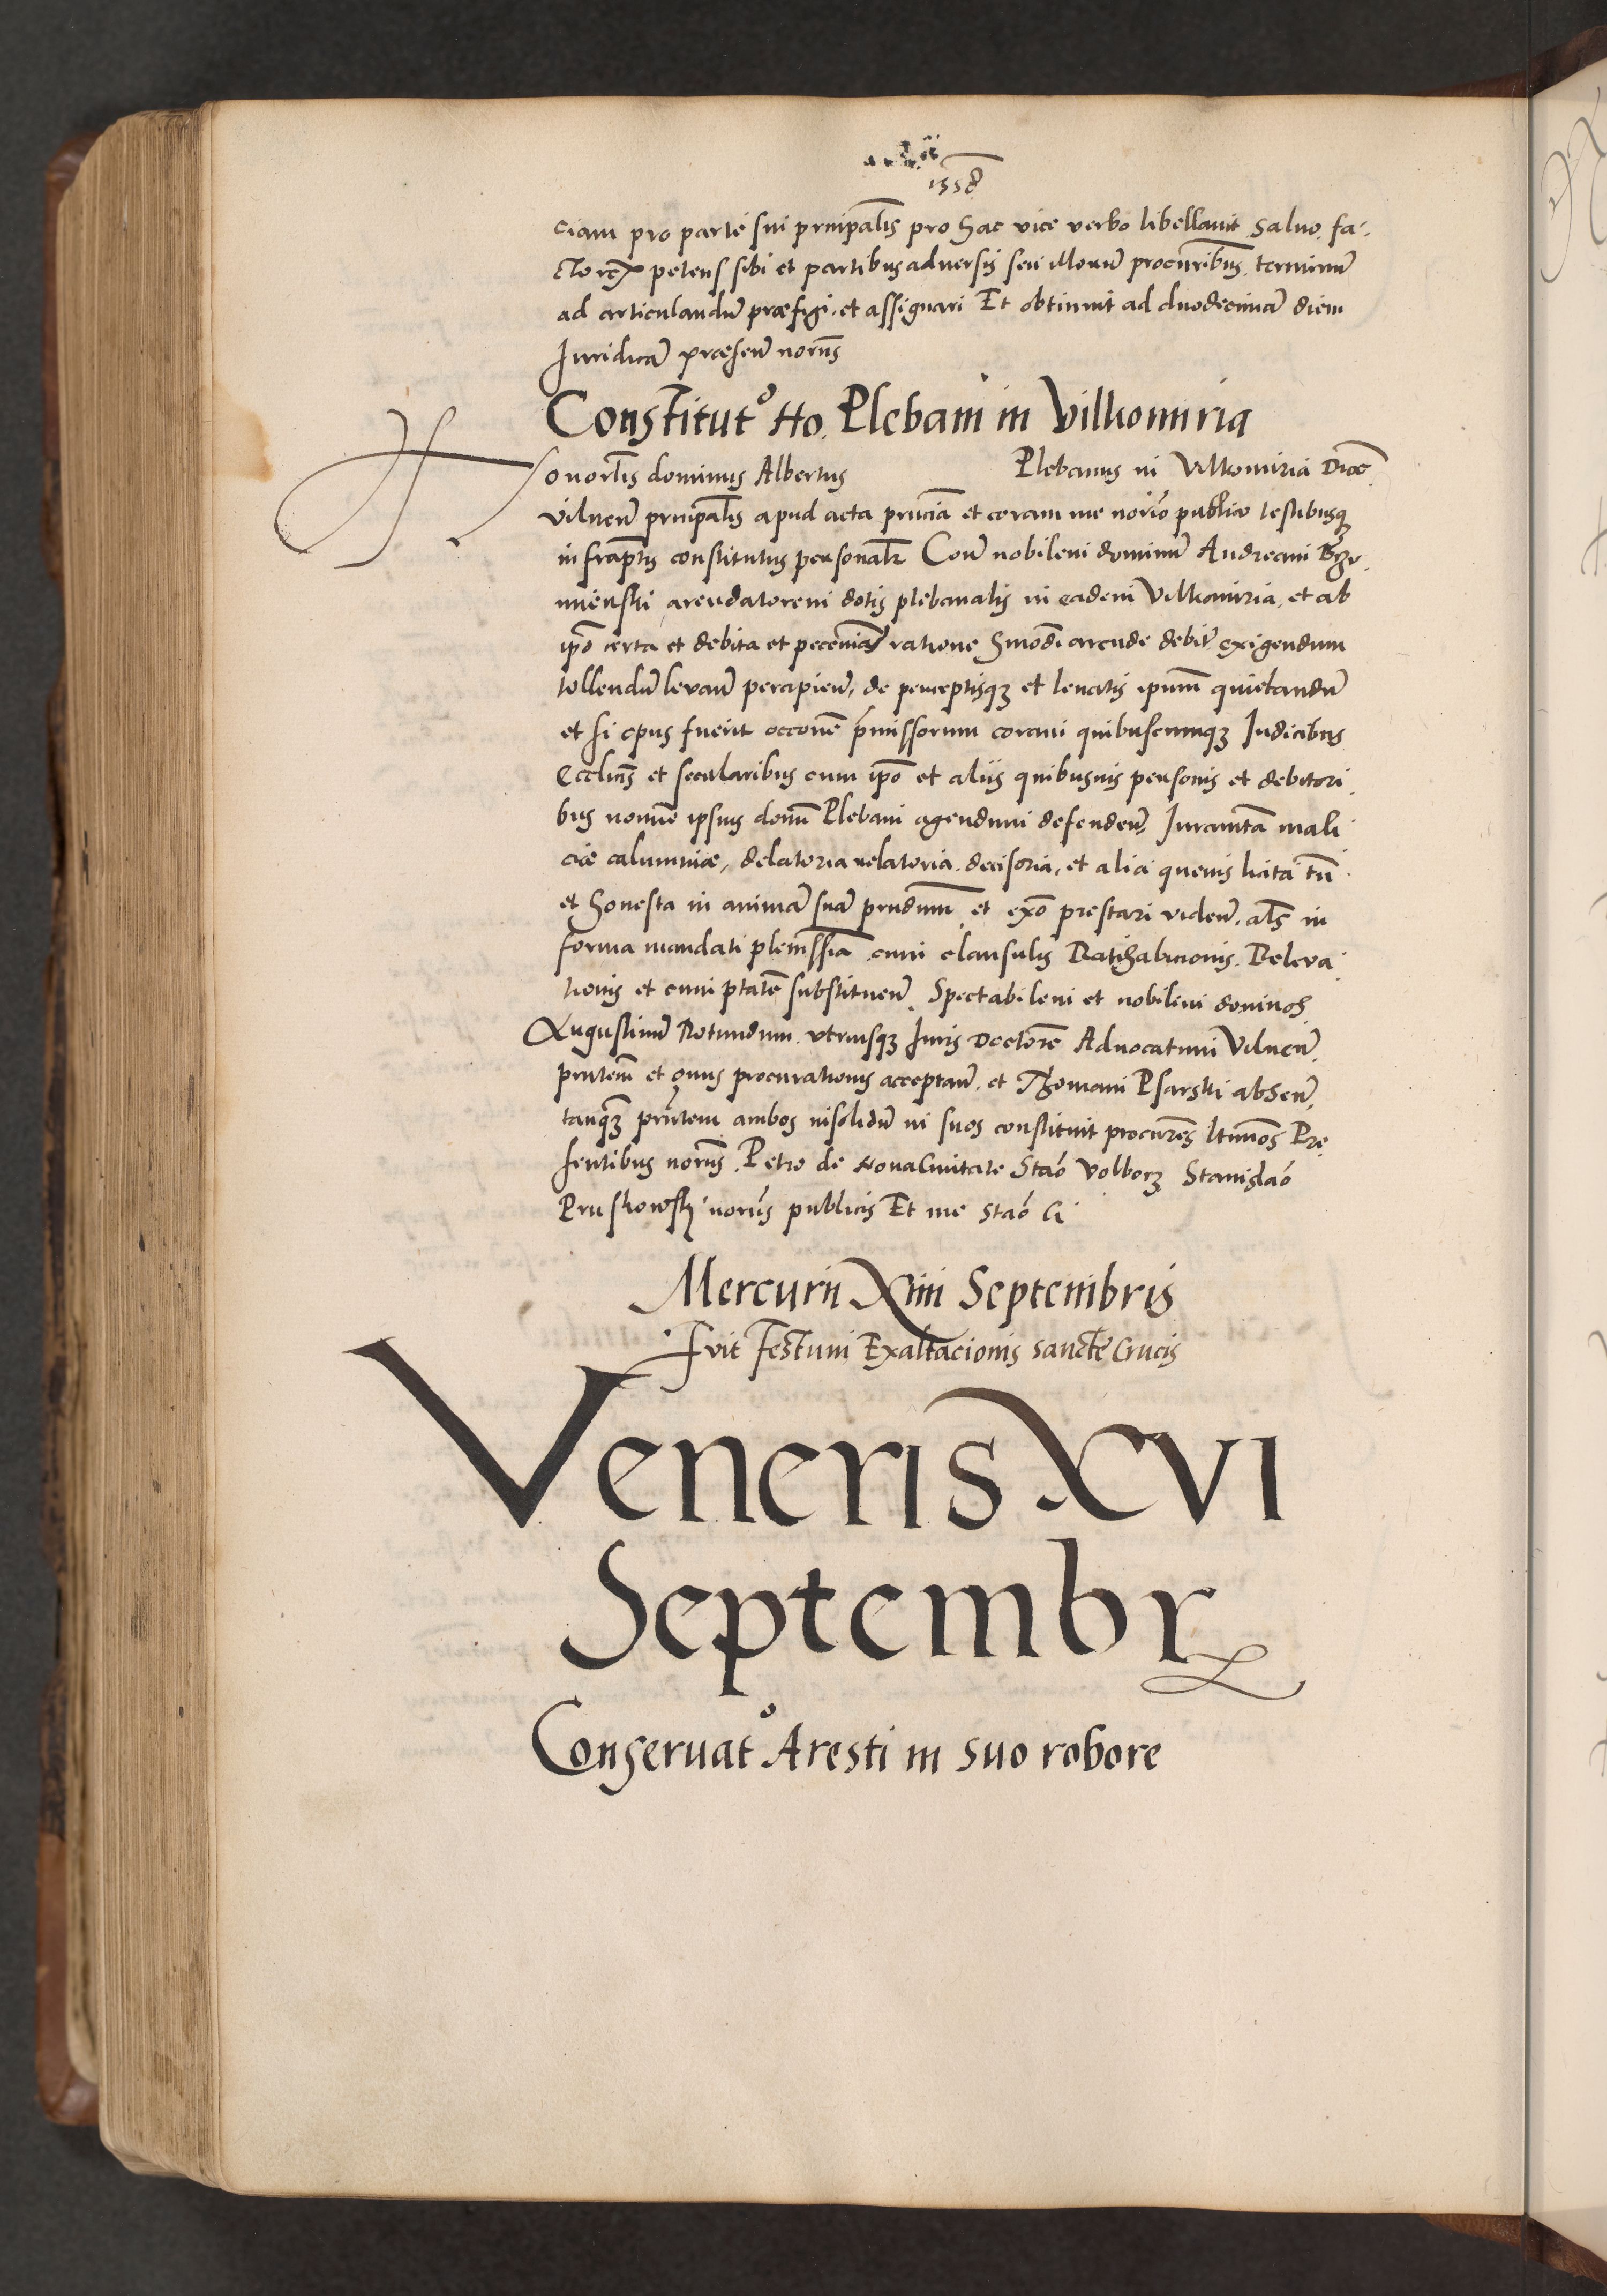 1558
ciam pro parte sui prnīpalis pro hac vice verbo libellavit Salvo fa-
cto petens sibi et partibus adversis seu illorum procuribus terminū
ad articulandū præfigi et assignari Et obtinuit ad duodecimā diem
Juridicā præsen norūs
Constitutᵒ Ho. Plebani in Vilkomiria
Honorlis dominus Albertus Plebanus in Vilkomiria Dioc
Vilneñ prnīpalis apud acta prnciā et coram me norio publico testibusqȝ
infraptis constitutus personalr Coñ nobilem dominū Andream
arendatorem dotis plebanalis in eadem Vilkomiria, et ab
ipō certa et debita et pecenias ratione hmodi arende debit exigendum
tollendū levanḋ percipieñ, de perceptisqȝ et levatis ipum quietandū
et si opus fuerit occoñe p̄missorum coram quibuscumqȝ Judicibus
Ecclicis et secularibus cum ipō et aliis quibusvis personis et debitori
bus noīe ipsius domī Plebani agendum defendeñ, Juramta mali
ciæ calumniæ, delatoria relatoria decisoria, et alia quevis licita tn̄
et honesta in animā suā prndum et exō prestari videñ, als in
forma mandati plenissīa cum clausulis Ratihabicionis Releva
tionis et cum ptate substitueñ Spectabilem et nobilem dominos
Augustinū Rotundum utriusqȝ Juris Doctorē Advocatum Vilneñ
prntem et onus procurationis acceptañ, et Thomam Psarski abseñ,
tanqȝ prntem ambos insolidū in suos constituit procures ltimos Pre
sentibus noriis Petro de Nova Civitate Stao Volborz Stanislao
Pruskowski noriis publicis Et me Stao G
Mercurii XIIII Septembris
Fuit Festum Exaltacionis Sancte Crucis
Veneris XVI
Septembr
Conservatᵒ Aresti in suo robore